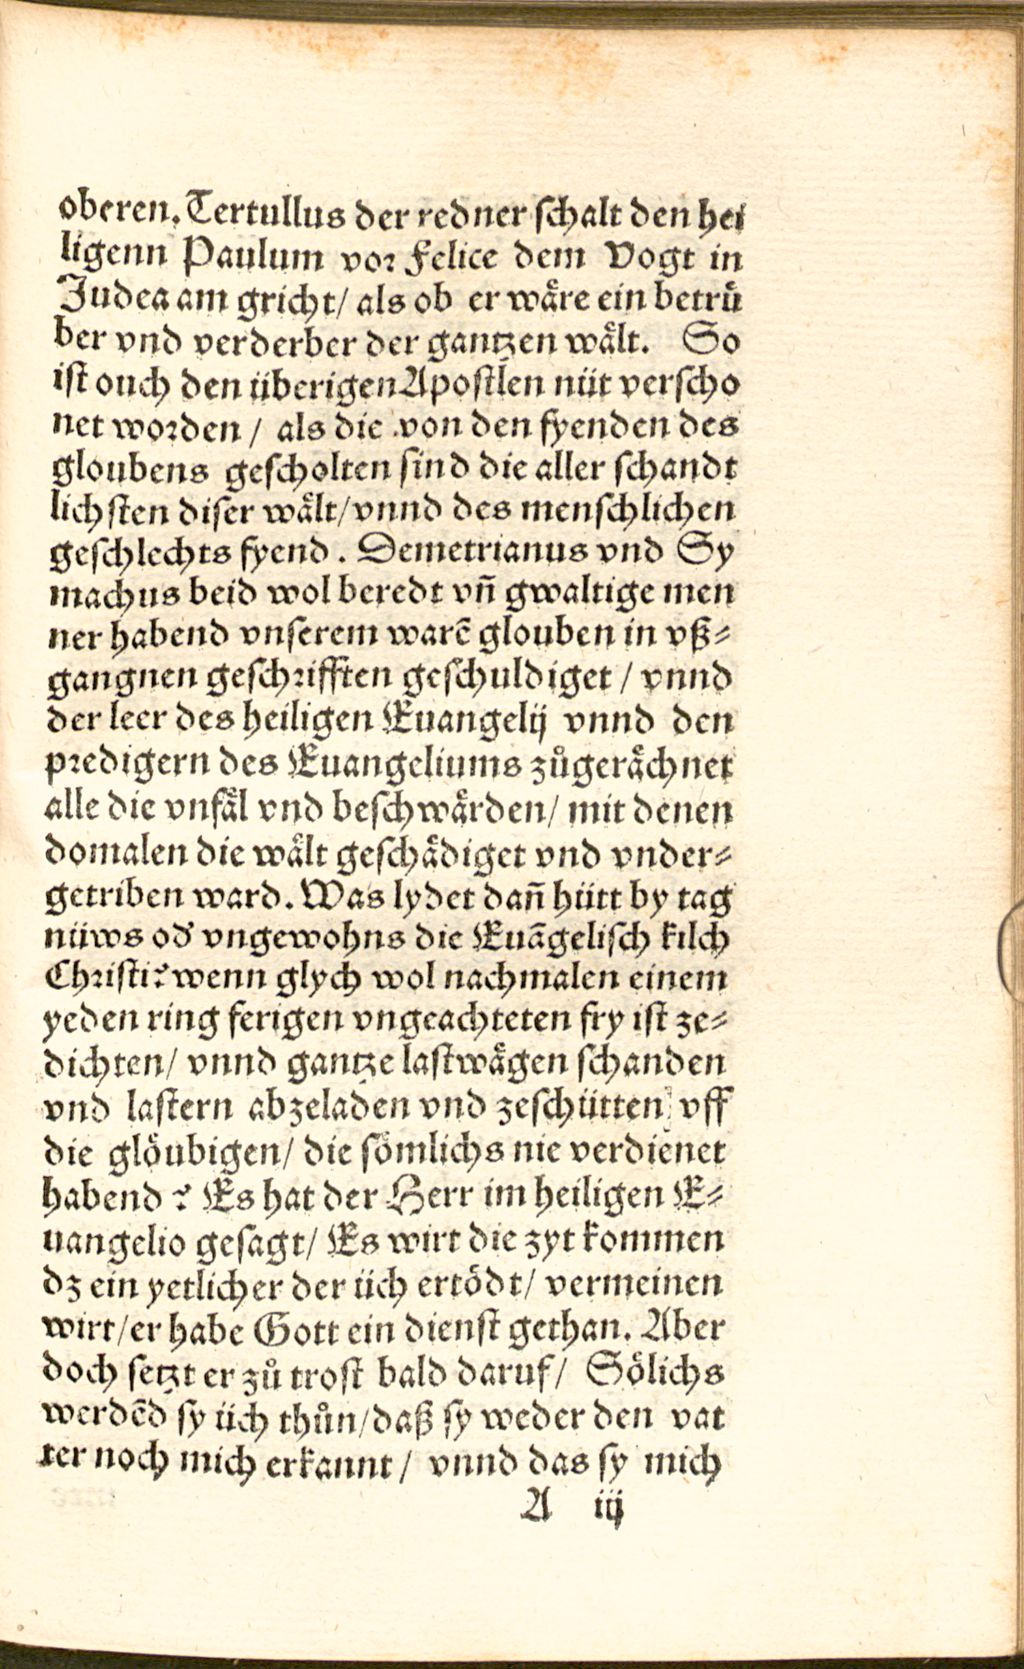 oberen. Tertullus der redner schalt den hei
ligenn Paulum vor Felice dem Vogt in
Judea am gricht/ als ob er wäre ein betrü
ber vnd verderber der gantzen wält. So
ist ouch den überigen Apostlen nüt verscho
net worden / als die von den fyenden des
gloubens gescholten sind die aller schandt
lichsten diser wält/ vnnd des menschlichen
geschlechts fyend. Demetrianus vnd Sy
machus beid wol beredt vñ gwaltige men
ner habend vnserem warē glouben in vß⸗
gangnen geschrifften geschuldiget / vnnd
der leer des heiligen Euangelij vnnd den
predigern des Euangeliums zůgerächnet
alle die vnfäl vnd beschwärden/ mit denen
domalen die wält geschädiget vnd vnder⸗
getriben ward. Was lydet dañ hütt by tag
nüws od' vngewohns die Euāgelisch kilch
Christi? wenn glych wol nachmalen einem
yeden ring ferigen vngeachteten fry ist ze⸗
dichten/ vnnd gantze lastwägen schanden
vnd lastern abzeladen vnd zeschütten vff
die glöubigen/ die sömlichs nie verdienet
habend? Es hat der Herr im heiligen E⸗
uangelio gesagt/ Es wirt die zyt kommen
dz ein yetlicher der üch ertödt/ vermeinen
wirt/ er habe Gott ein dienst gethan. Aber
doch setzt er zů trost bald daruf/ Sölichs
werdēd sy üch thůn/ daß sy weder den vat
ter noch mich erkannt / vnnd das sy mich
A iij